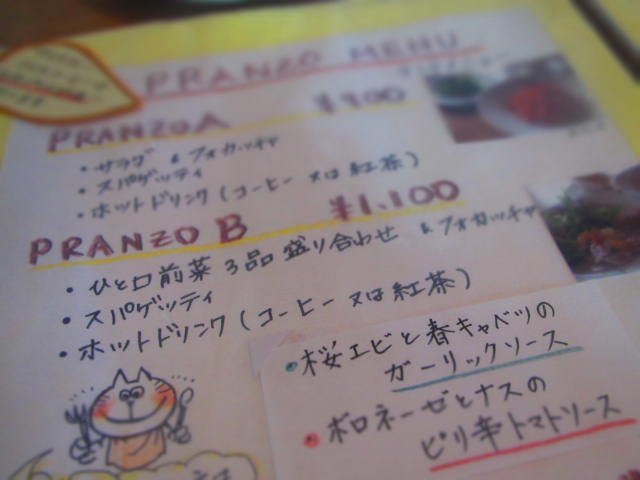 PRANZO MENU
PRANZO A ¥900
・サラダ & フォカッチャ
・スパゲッティ
・ホットドリンク (コーヒー 又は 紅茶)
PRANZO B ¥1,100
・ひと口前菜 3品 盛り合わせ & フォカッチャ
・スパゲッティ
・ホットドリンク (コーヒー 又は 紅茶)
・桜エビと春キャベツの
ガーリックソース
・ボロネーゼとナスの
ピリ辛トマトソース